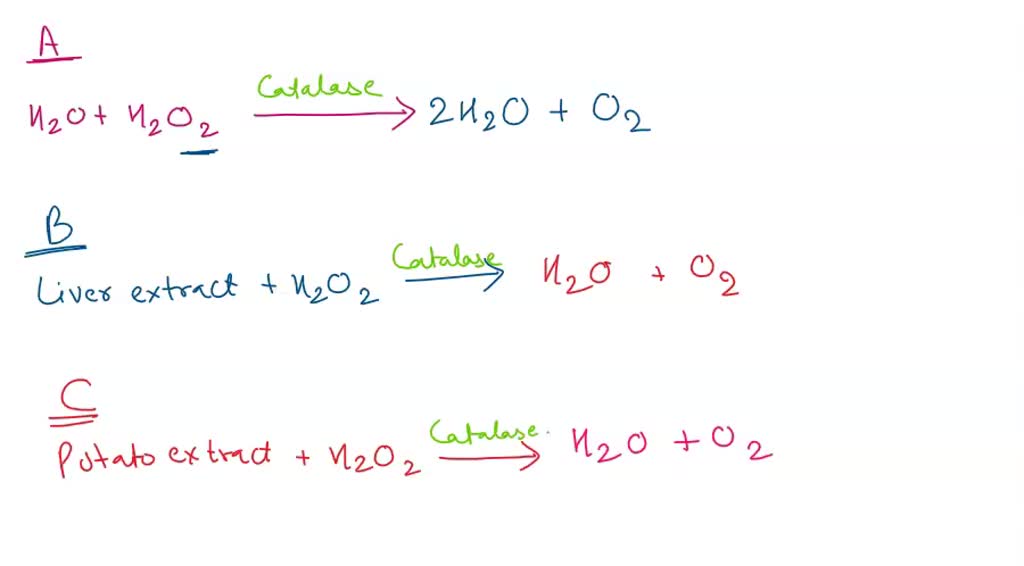 A
H2O + H2O2 Catalase → 2H2O + O2
B
Liver extract + H2O2 Catalase → H2O + O2
C
Potato extract + H2O2 Catalase. → H2O + O2